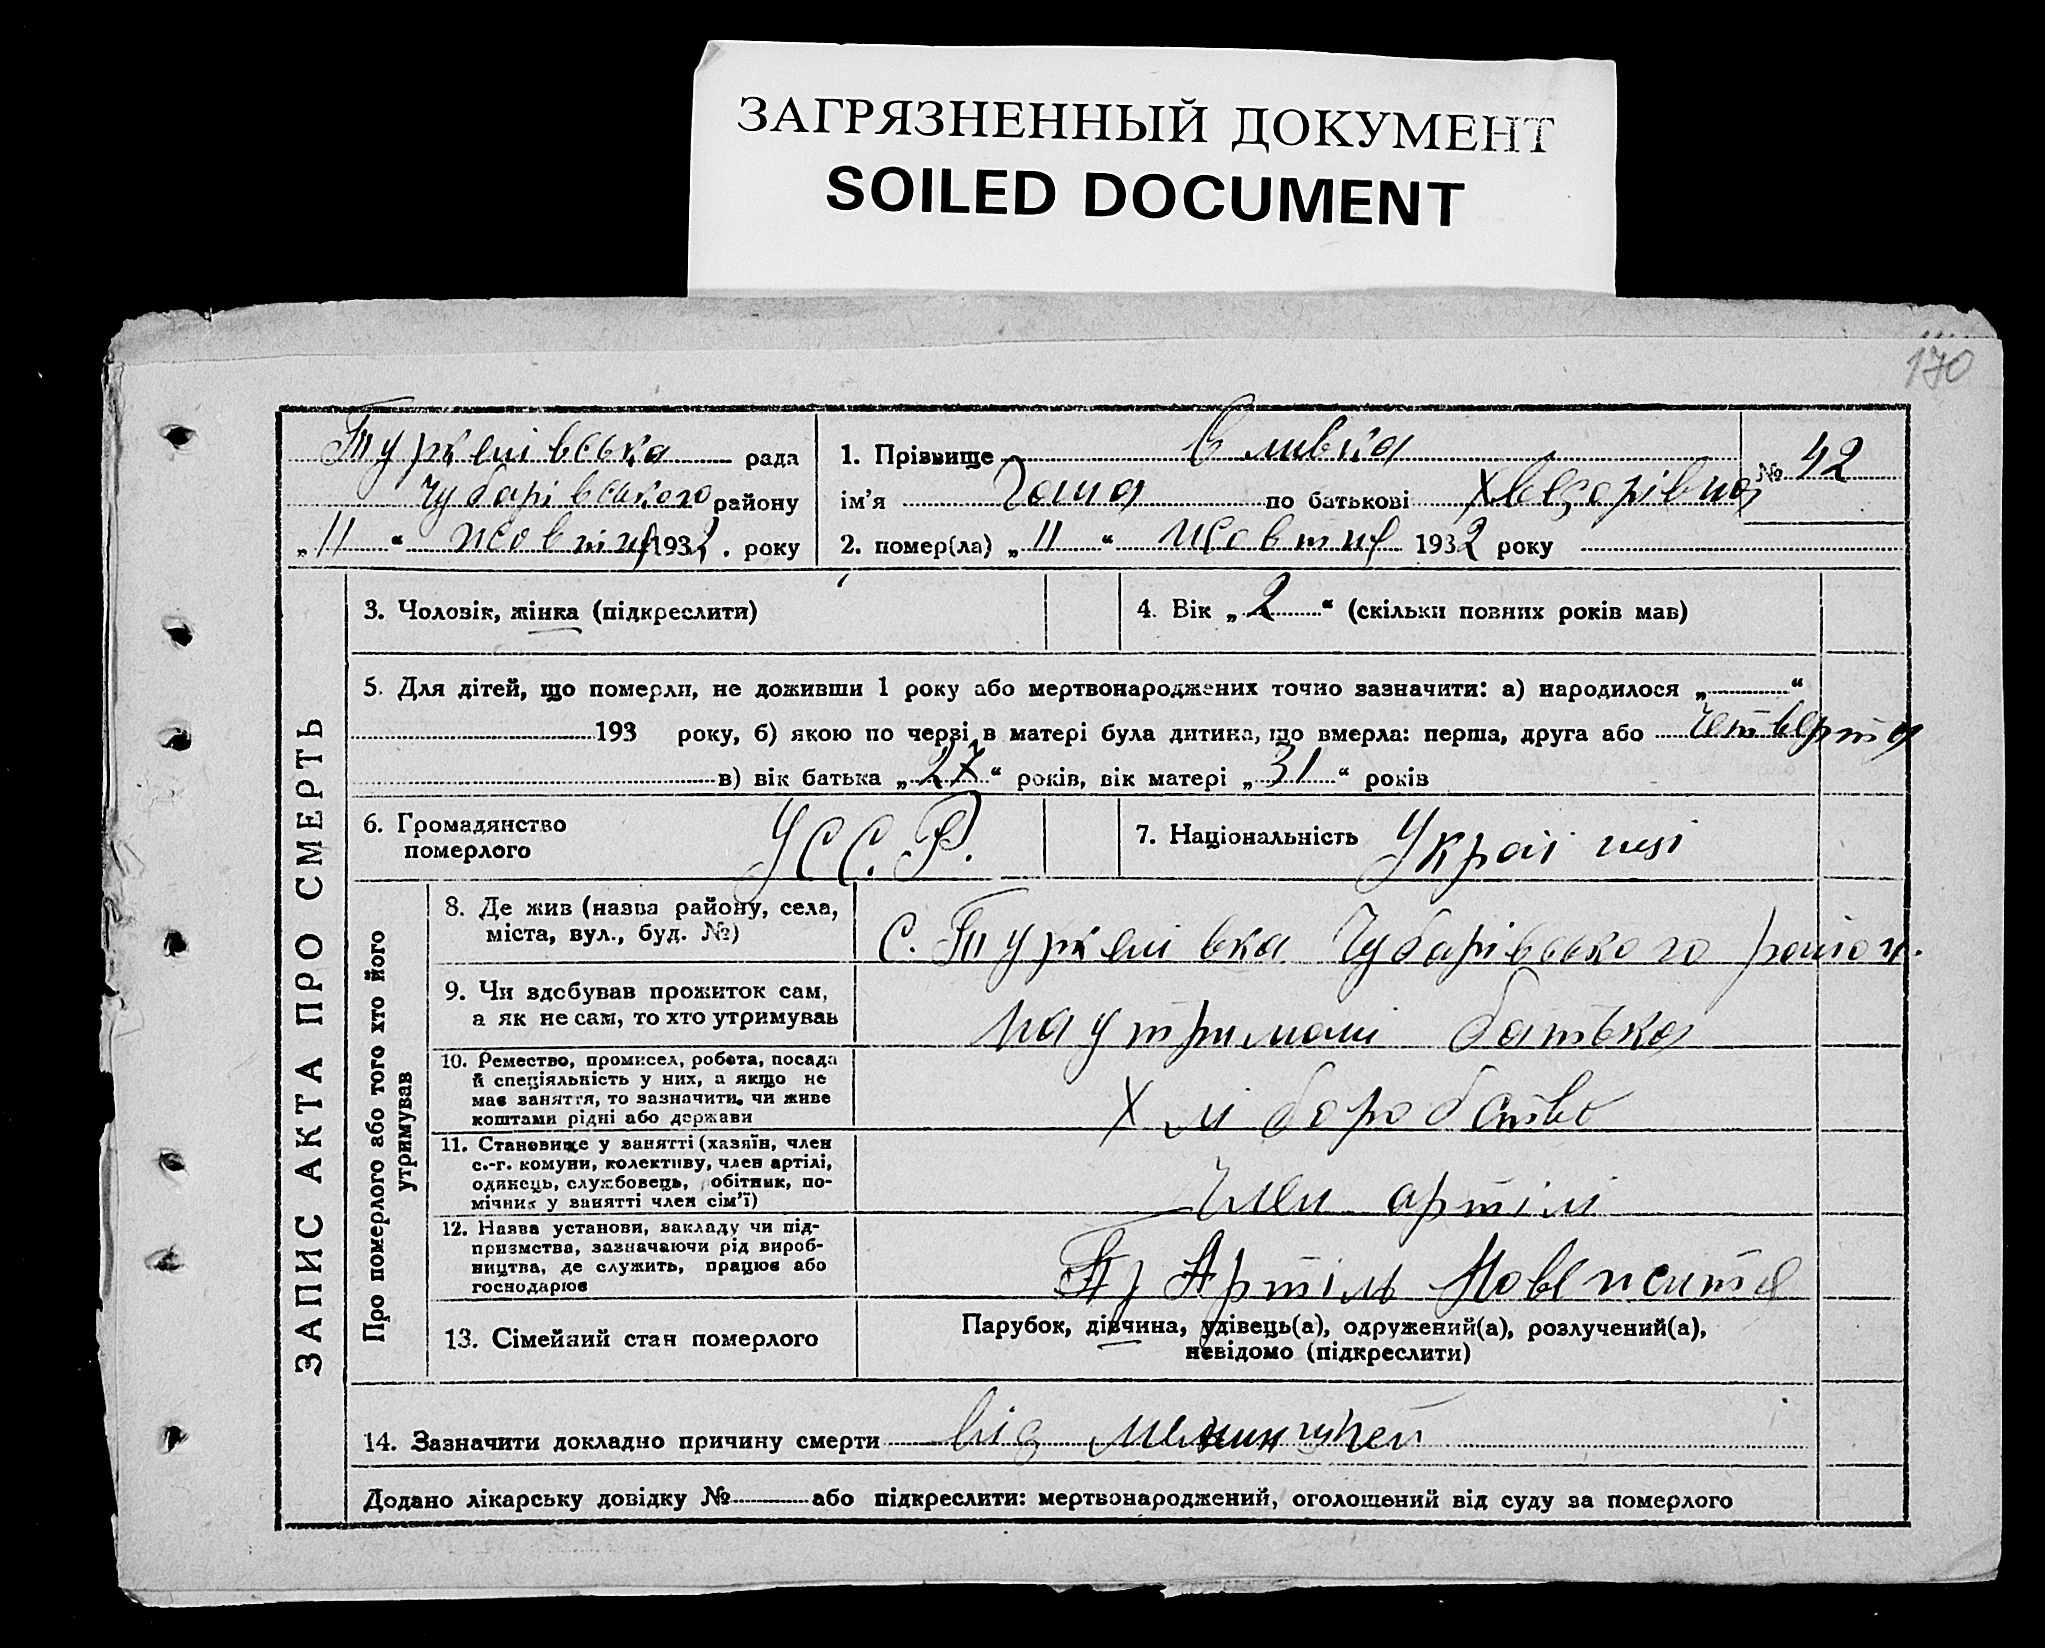 ЗАГРЯЗНЕННЫЙ ДОКУМЕНТ
SOILED DOCUMENT
170
Туркенівська рада
Чубарівського району
„11“ жовтня 1932. року
1. Прізвище Сливка
№ 42
ім’я Ганна по батькові Хведорівна
2. помер(ла) „11“ жовтня 1932 року
ЗАПИС АКТА ПРО СМЕРТЬ
3. Чоловік, жінка (підкреслити)
4. Вік „2“ (скільки повних років мав)
5. Для дітей, що померли, не доживши 1 року або мертвонароджених точно зазначити: а) народилося „ “
193 року, б) якою по черзі в матері була дитина, що вмерла: перша, друга або четверта
в) вік батька „27“ років, вік матері „31“ років
6. Громадянство померлого УССР.
7. Національність Україн
Про померлого або того хто його утримував
8. Де жив (назва району, села, міста, вул., буд. №) с. Туркенівка Чубарівського район.
9. Чи здобував прожиток сам, а як не сам, то хто утримував на утримані батька
10. Ремество, промисел, робота, посада й спеціяльність у них, а якщо не має заняття, то зазначити, чи живе коштами рідні або держави
Хліборобство
11. Становище у занятті (хазяїн, член с.-г. комуни, колективу, член артілі, одинець, службовець, робітник, помічник у занятті член сім’ї)
Член артілі
12. Назва установи, закладу чи підприємства, зазначаючи рід виробництва, де служить, працює або господарює
Артіль Нове життя
13. Сімейний стан померлого
Парубок, дівчина, удівець(а), одружений(а), розлучений(а),
невідомо (підкреслити)
14. Зазначити докладно причину смерти від
Додано лікарську довідку № або підкреслити: мертвонароджений, оголошений від суду за померлого